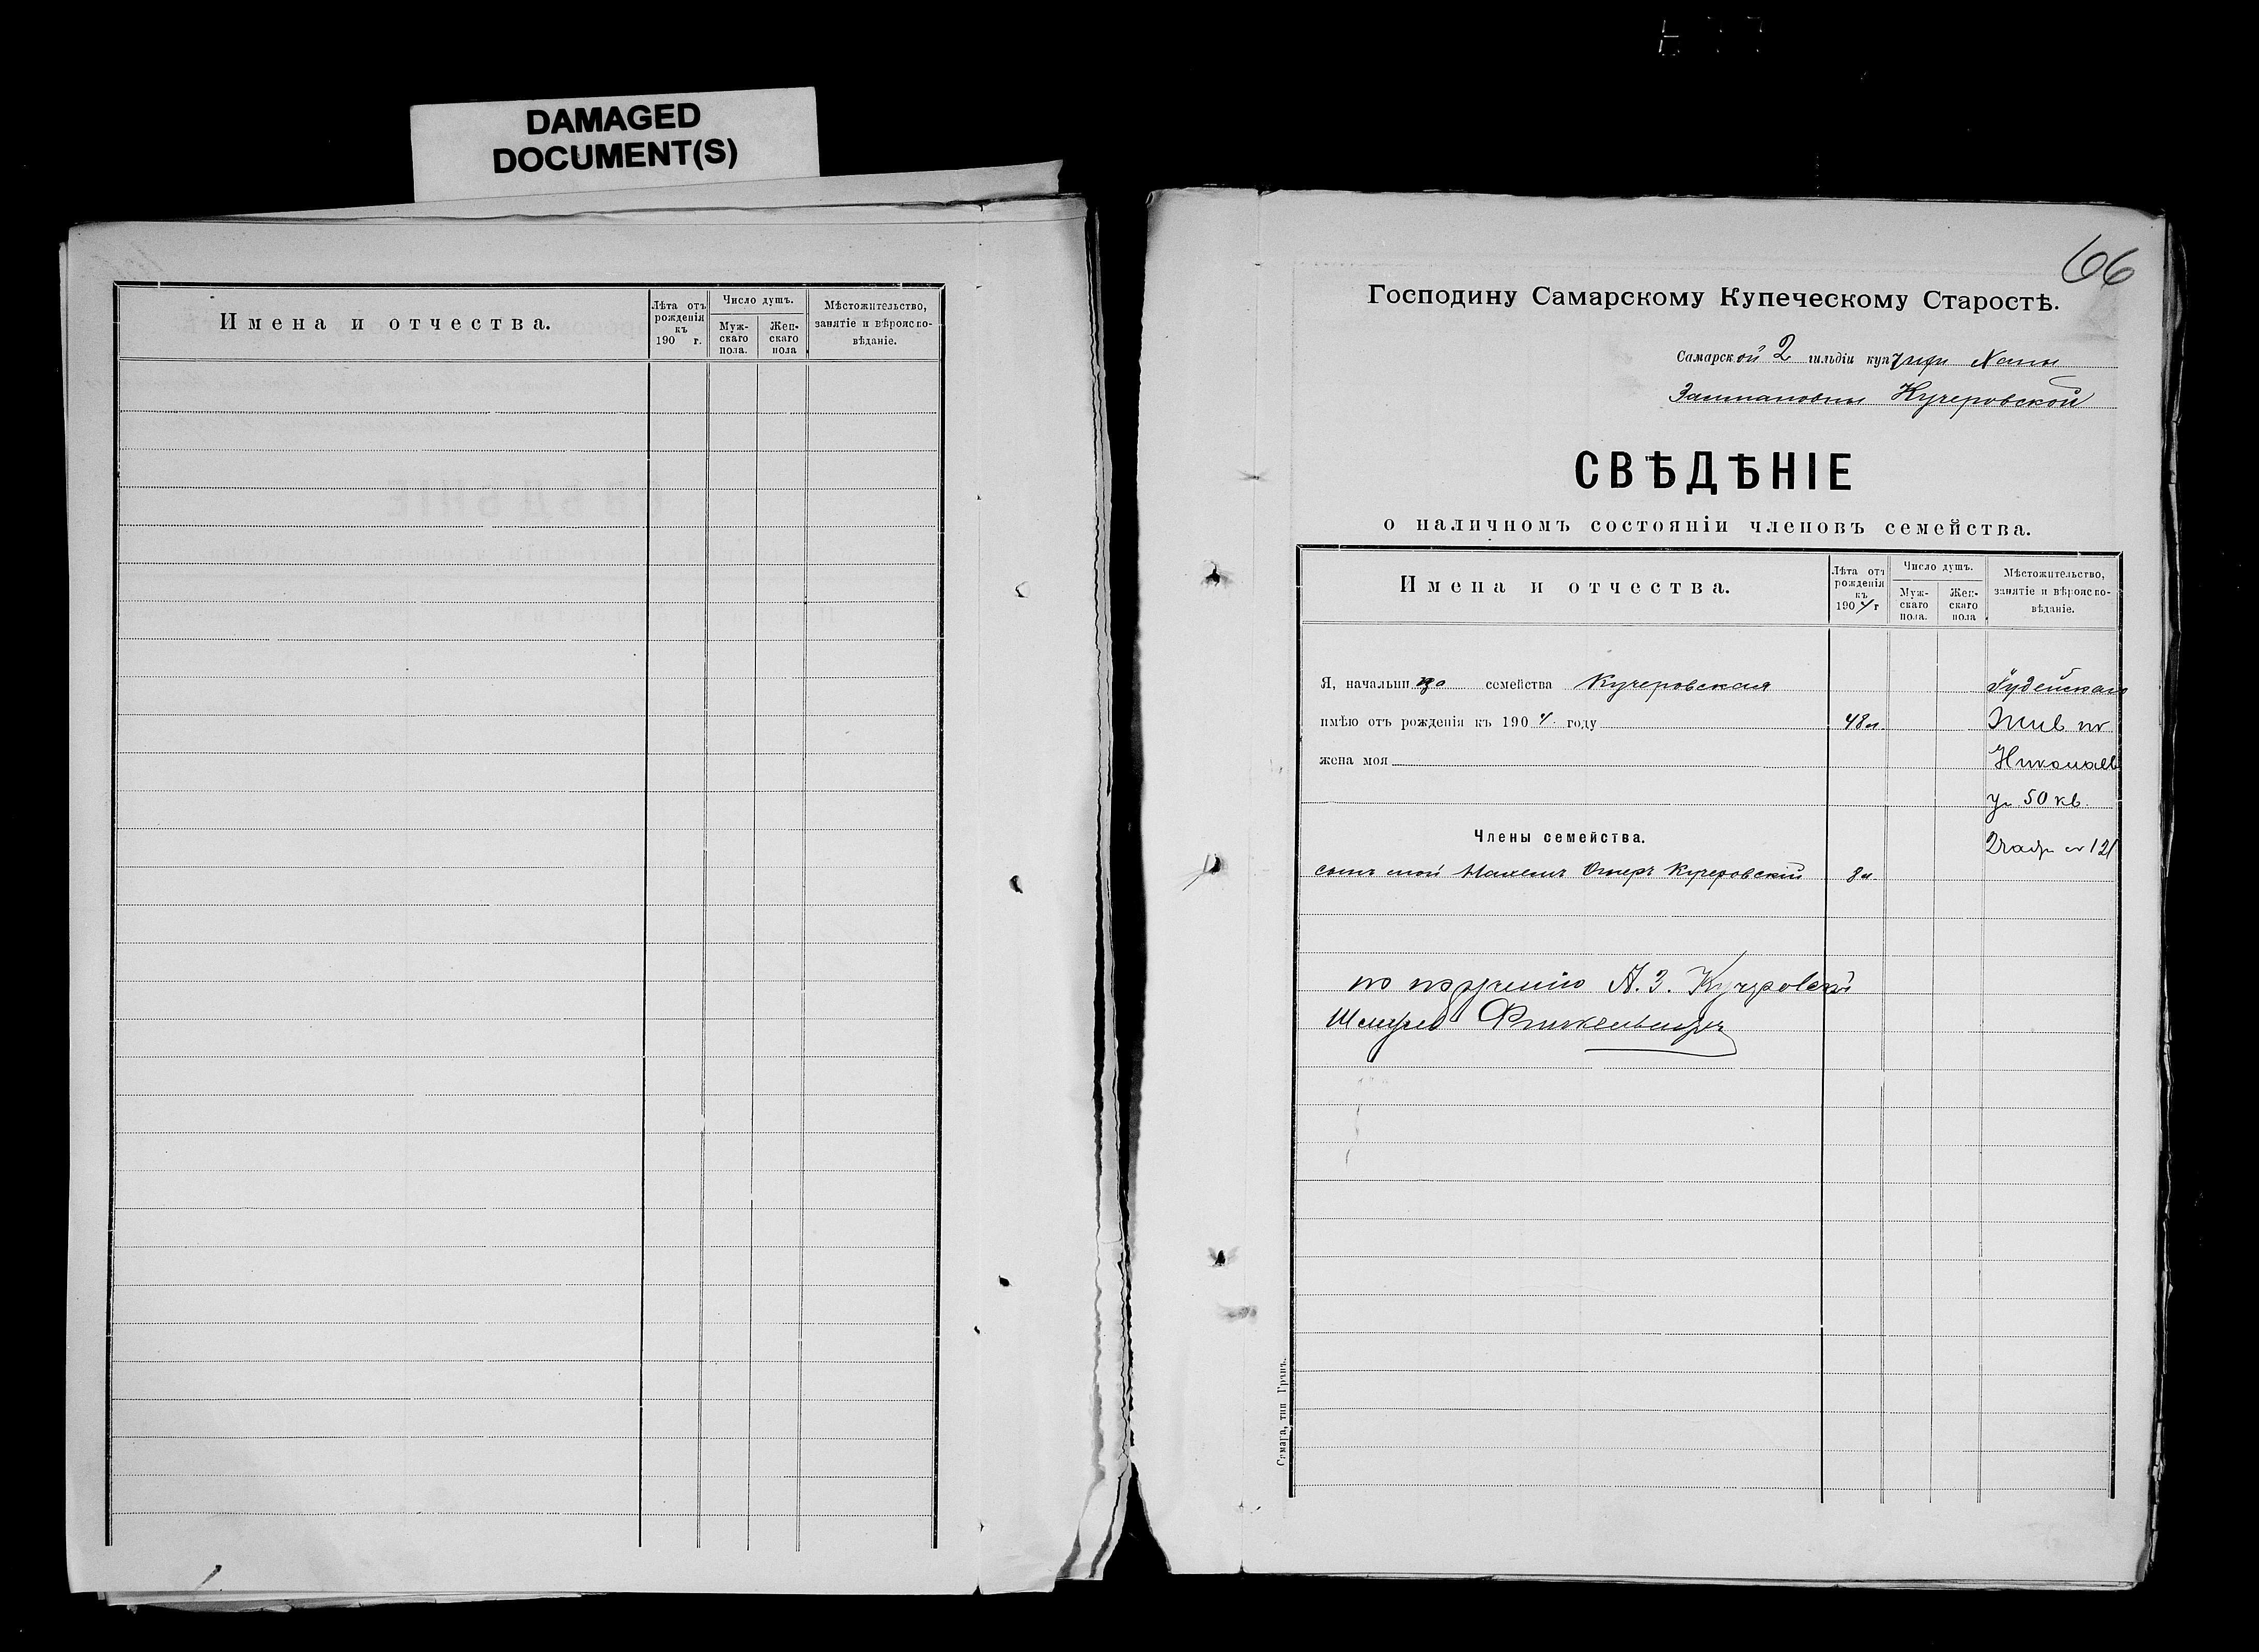 DAMAGED
DOCUMENT(S)
Имена и отчества.
Лѣта отъ рожденія къ 190 г.
Число душъ.
Мужскаго пола.
Женскаго пола
Мѣстожительство, занятіе и вѣроисповѣданіе.
66
Господину Самарскому Купеческому Старостѣ.
Самарской 2 гильдіи куп Ханы
Залмановны Кучеровской
СВѢДѢНІЕ
о наличномъ состояніи членовъ семейства.
Имена и отчества.
Лѣта отъ рожденія къ 1904 г
Число душъ.
Мужскаго пола.
Женскаго пола
Мѣстожительство, занятіе и вѣроисповѣданіе.
Я, начальница семейства Кучеровская
Іудейскаго
имѣю отъ рожденія къ 1904. году 48 л.
Жив по
жена моя
Николаев
ул 50 кв.
Члены семейства.
2 части № 121
сынъ мой Кучеровскій 8 л.
по порученію Х. З. Кучеровской
Финкельштейнъ
Самара, тип Гранъ.